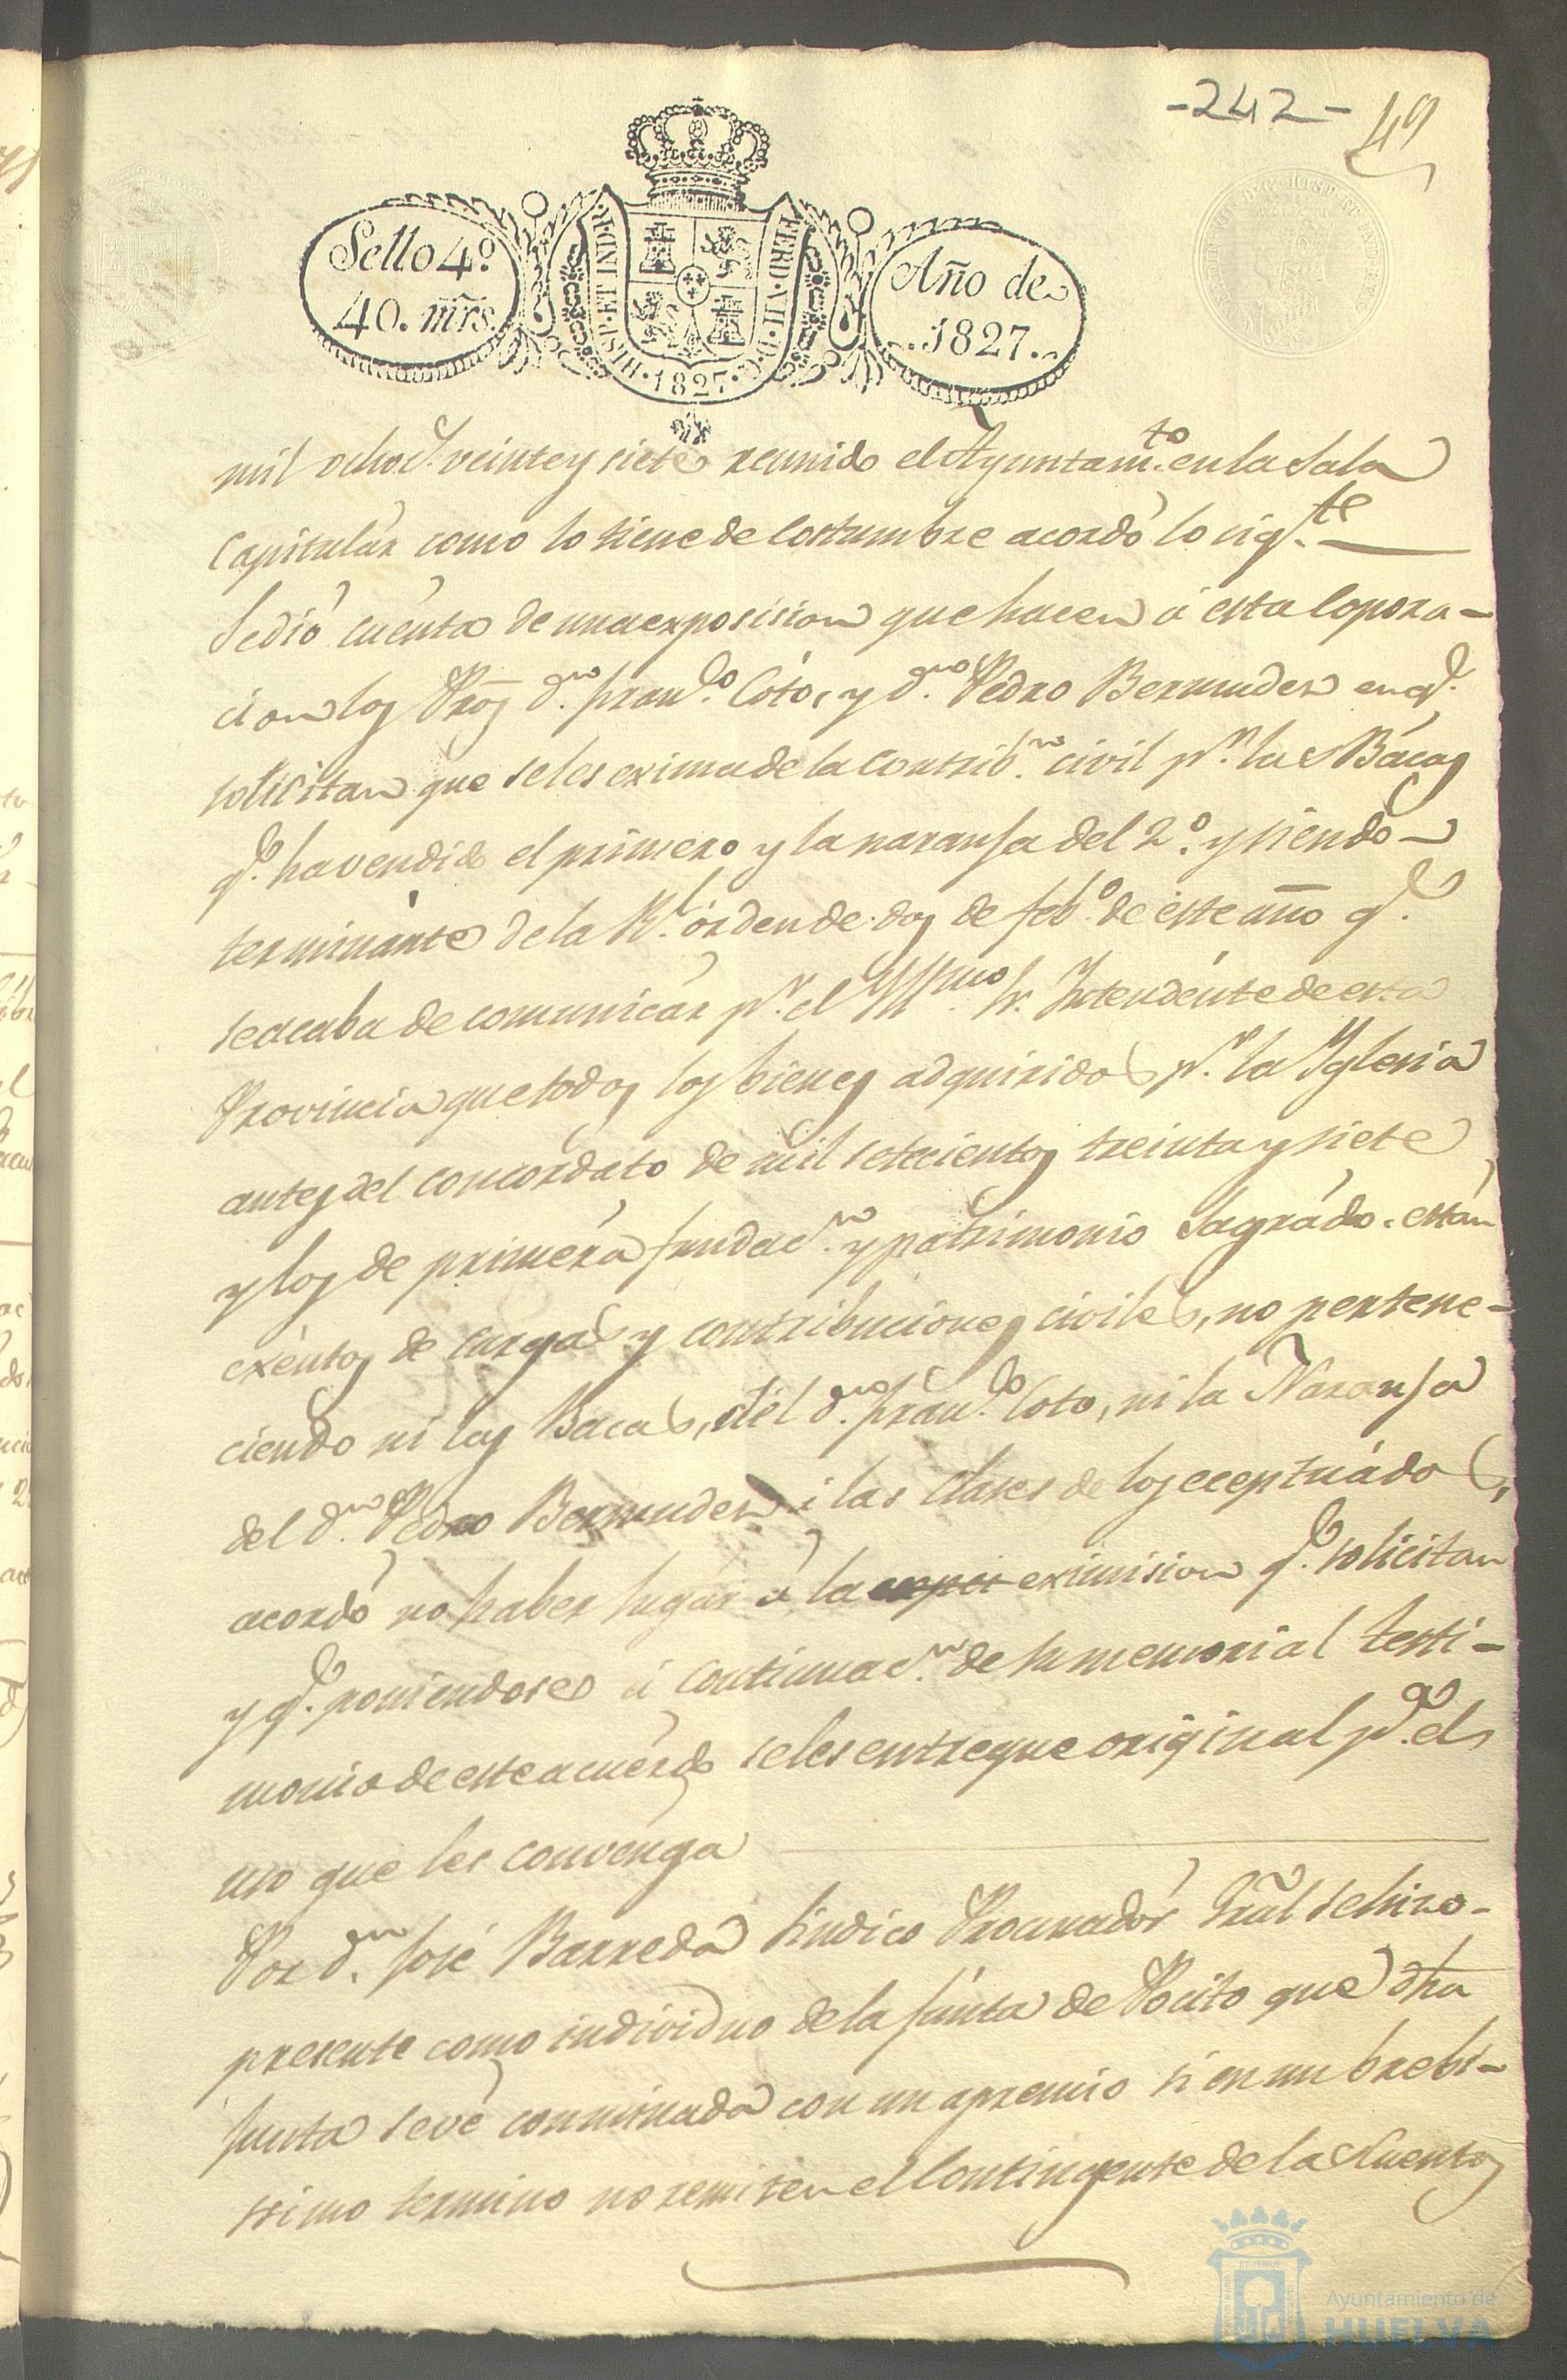 -242- 49
Sello 4.º
40. mrs.
HISP. ET IND. R.
FERD. VII. D. G.
·1827·
Año de
1827.
mil ochoc.s veinte y siete reunido el Ayuntam.to en la Sala
Capitulár como lo tiene de Costumbre acordó lo sig.te
Se dió cuénta de una exposision que hacen á esta Copora-
cion los Pros d.n fran.co Cóto, y d.n Pedro Bermudez en q.e
solicitan que se les exima de la Contrib.n civil p.r las Bácas
q.e ha vendido el primero y la naranja del 2.º y siendo
terminánte de la R.l órden de dos de feb.o de éste año q.e
se acaba de comunicár p.r el Yllmo Sr. Yntendénte de esta
Provincia que todos los bienes adquiridos p.r la Yglesia
antes del concordáto de mil setecientos treinta y siete
y los de priméra fundac.n y patrimonio Sagrádo. están
exéntos de cargas y contribuciónes civiles, no pertene-
ciendo ni las Bacas, del d.n fran.co Coto, ni la Naranja
del d.n Pedro Bermudez á las clases de los eceptuádos,
acordó no haber lugár á la eximision q.e solicitan
y q.e poniendose á Continuac.n de su memorial testi-
monio de este acuérdo se les entregue original p.a el
uso que les convénga
Por d.n José Barreda Sindico Procuradór Gral se hizo
presente como individuo de la Júnta de Pocito que dha
Junta se vé conminada con un apremio si en un brebi-
ssimo termino no remiten el Contingente de las Cuentas
Ayuntamiento de
HUELVA